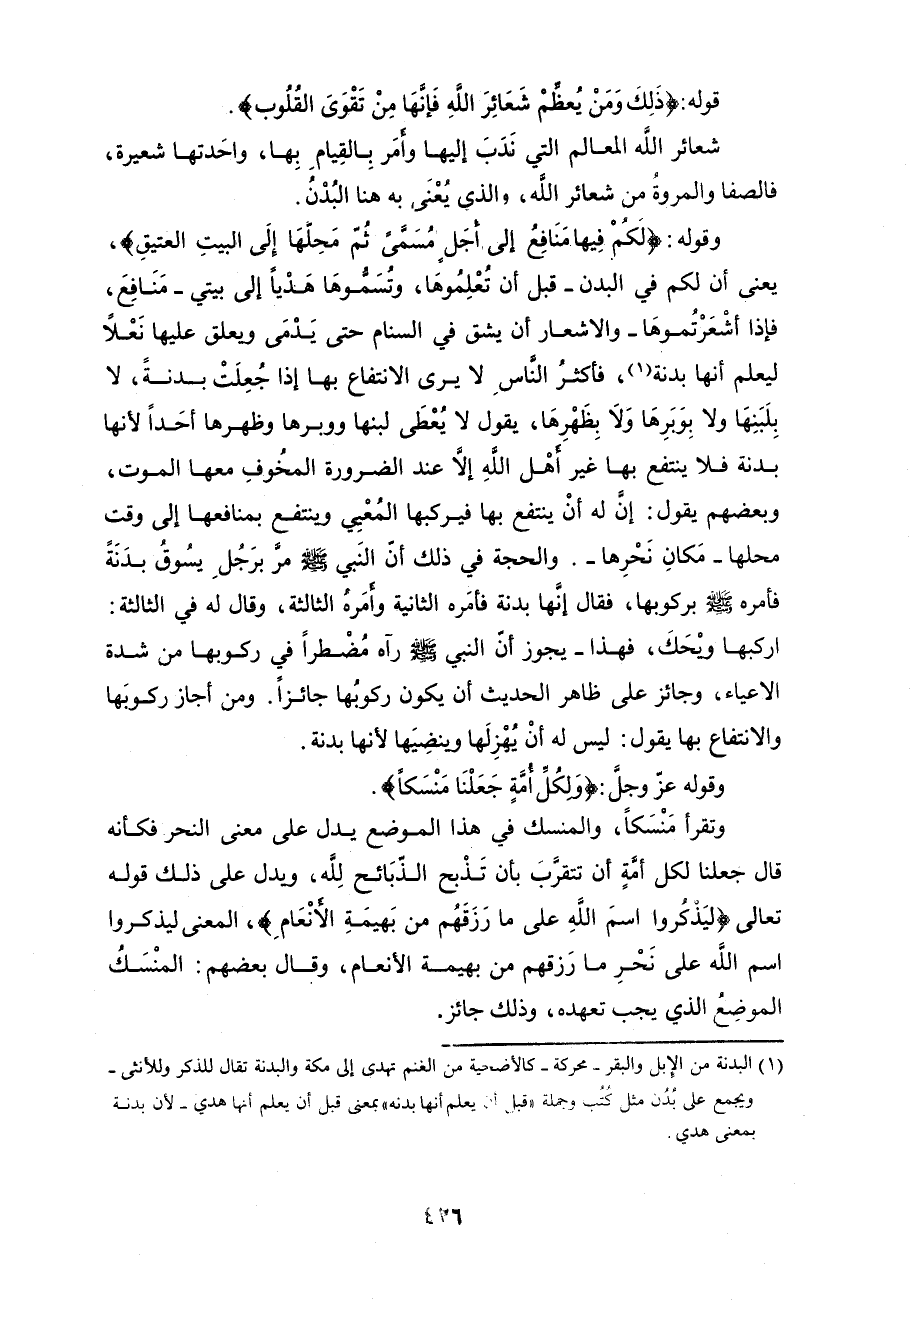 قوله:﴿ذَلِكَ وَمَنْ يُعظِّمْ شَعَائِرَ اللَّهِ فَإنَّهَا مِنْ تَقْوَى القُلُوب﴾.
شعائر اللَّه المعـالم التي نَدَبَ إليهـا وأَمَر بِـالقِيام بِهـا، واحَدتهـا شعيرة،
فالصفا والمروةُ من شعائر اللَّه، والذي يُعْنَى به هنا البُدْنُ.
وقوله: ﴿لَكُمْ فِيها مَنَافِعُ إلى أَجَلٍ مُسَمًّى ثُمّ مَحِلّهَا إلَى البيتِ العتيقِ﴾،
يعنى أن لكم في البدن ـ قبل أن تُعْلِمُوهَا، وتُسَمُّوهَا هَدْياً إلى بيتي ـ مَنَـافِعَ،
فإذا أشْعَرْتُمـوهَا ـ والاشعـار أن يشق في السنام حتى يَـدْمَى ويعلق عليها نَعْـلًا
ليعلم أنها بدنة(١)، فأكثـرُ النَّاسِ لا يـرى الانتفاع بهـا إذا جُعِلَتْ بـدنـةً، لا
بِلَبَنِهَا ولا بِوَبَرِها وَلَا بِظَهْرِهَا، يقول لا يُعْطَى لبنها ووبـرها وظهـرها أحَـداً لأنها
بـدنة فـلا ينتفع بهـا غير أَهْـل اللَّهِ إلاَّ عند الضـرورة المخُوفِ معهـا المـوت،
وبعضهم يقول: إنَّ له أنْ ينتفع بها فيـركبها المُعْيِي وينتفـع بمنافعهـا إلى وقت
محلها ـ مَكانِ نَحْرِها ـ . والحجة في ذلك أنّ النَبي ﷺ مرَّ برَجُلٍ يسُوقُ بـدَنَةً
فأمره ﷺ بركوبها، فقال إنَّها بدنة فأمَره الثانية وأَمَرهُ الثالثة، وقال له في الثالثة:
اركبهـا ويْحَكَ، فهـذا ـ يجوز أنّ النبي ﷺ رآه مُضْـطراً في ركـوبهـا من شدة
الاعياء، وجائز على ظاهر الحديث أن يكون ركوبُها جائـزاً. ومن أجاز ركـوبَها
والانتفاع بها يقول: ليس له أنْ يُهْزِلَها وينضِيَها لأنها بدنة.
وقوله عزّ وجلَّ:﴿وَلِكُلِّ أُمَّةٍ جَعَلْنَا مَنْسَكاً﴾.
وتقرأ مَنْسَكاً، والمنسك في هذا المـوضع يـدل على معنى النحر فكـأنه
قال جعلنا لكل أمَّةٍ أن تتقرَّبَ بأن تَـذْبح الـذّبَائـح لِلَّه، ويدل على ذلـك قولـه
تعالى ﴿لِيَذْكُروا اسمَ اللَّهِ على ما رَزَقَهُم من بَهِيمَةِ الأَنْعَام﴾، المعنى ليذكـروا
اسم اللَّه على نَحْـرِ مـا رَزقهم من بهيمـة الأنعـام، وقـال بعضهم: المنْسَكُ
الموضِعُ الذي يجب تعهده، وذلك جائز.
(١) البدنة من الإبل والبقر ـ محركة ـ كالأضحية من الغنم تهدى إلى مكة والبدنة تقال للذكر وللأنثى ـ
ويجمع على بُدُن مثل كُتُب وجملة «قبل أن يعلم أنها بدنه» بمعنى قبل أن يعلم أنها هدي ـ لأن بدنـة
بمعنى هدي.
٤٢٦